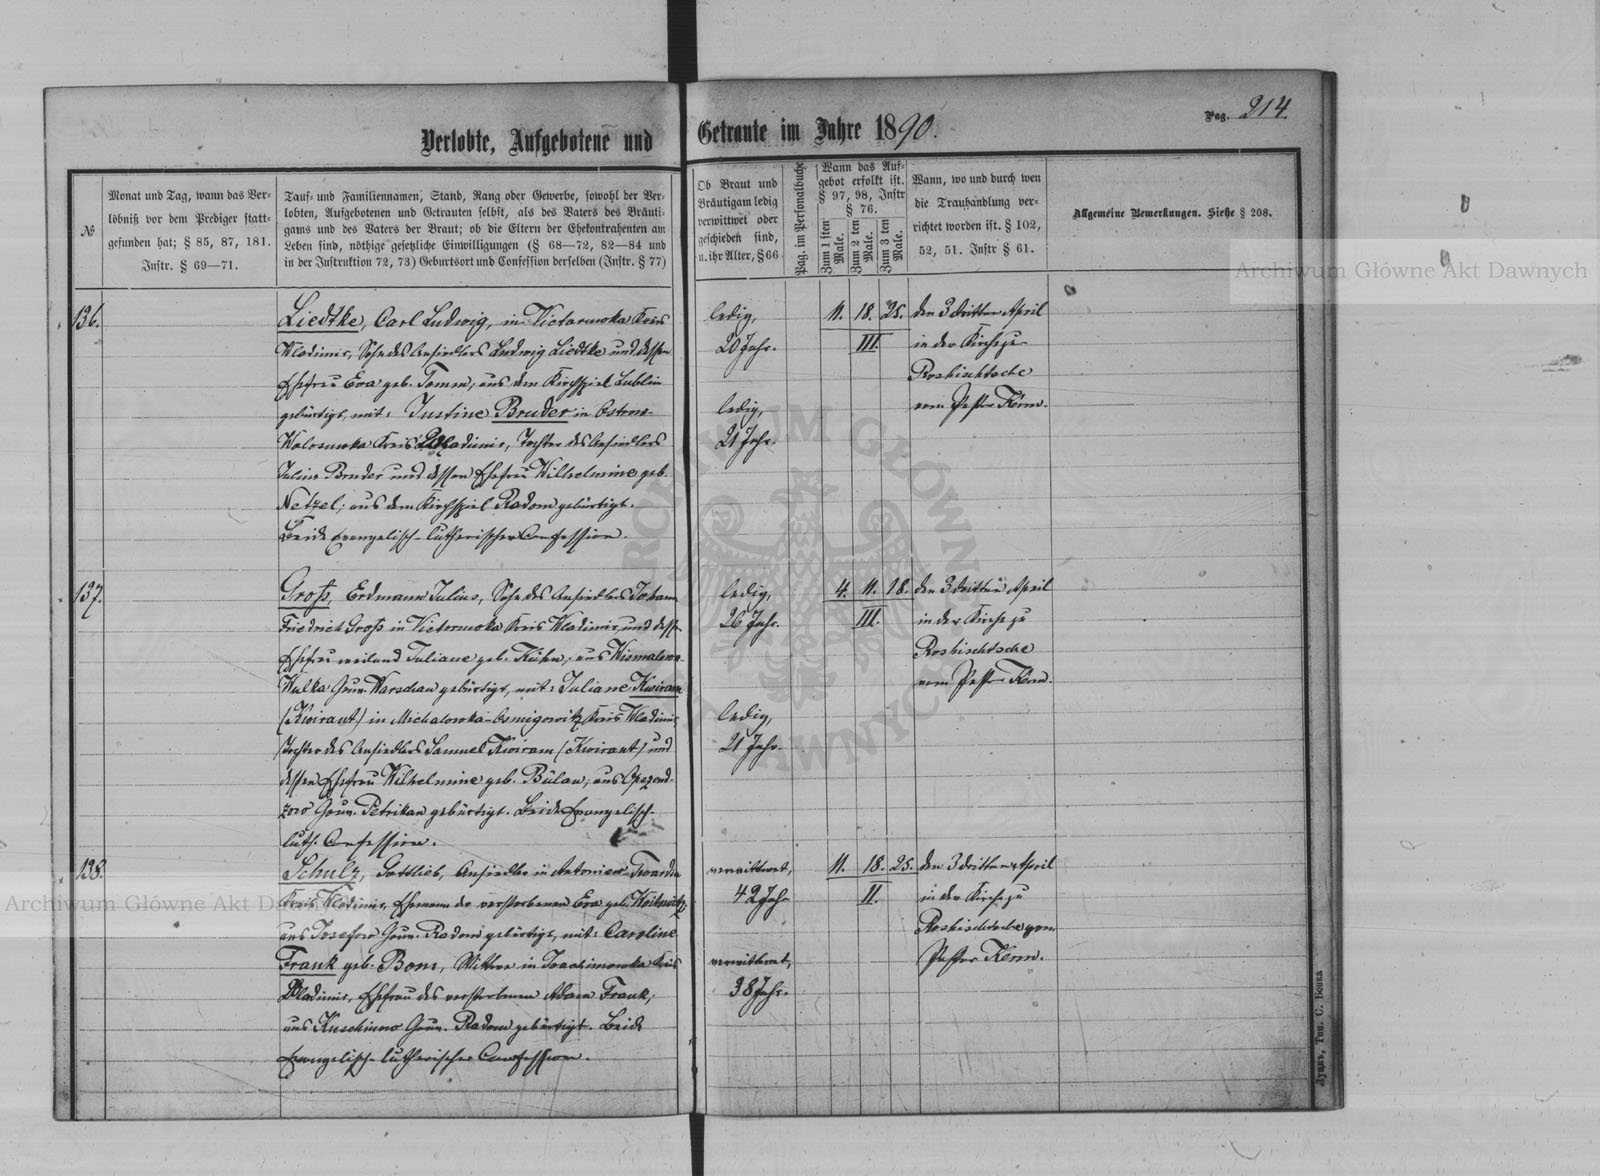 Pag. 214.
Verlobte, Aufgebotene und Getraute im Jahre 1890.
№
Monat und Tag, wann das Ver-
löbniß vor dem Prediger statt-
gefunden hat; § 85, 87, 181.
Instr. § 69—71.
Tauf- und Familiennamen, Stand, Rang oder Gewerbe, sowohl der Ver-
lobten, Aufgebotenen und Getrauten selbst, als des Vaters des Bräuti-
gams und des Vaters der Braut; ob die Eltern der Ehekontrahenten am
Leben sind, nöthige gesetzliche Einwilligungen (§ 68—72, 82—84 und
in der Instruktion 72, 73) Geburtsort und Confession derselben (Instr. § 77)
Ob Braut und
Bräutigam ledig
verwittwet oder
geschieden sind,
u. ihr Alter, § 66
Pag. im Personalbuche
Wann das Auf-
gebot erfolkt ist.
§ 97, 98, Instr
§ 76.
Zum 1 sten
Male.
Zum 2 ten
Male.
Zum 3 ten
Male.
Wann, wo und durch wen
die Trauhandlung ver-
richtet worden ist. § 102,
52, 51. Instr § 61.
Allgemeine Bemerkungen. Siehe § 208.
136.
Liedtke, Carl Ludwig, in Victorowka Kreis
Wladimir, Sohn des Ansiedlers Ludwig Liedtke und dessen
Ehefrau Eva geb. Tomm, aus dem Kirchspiel Lublin
gebürtigt, mit: Justine Bruder in Ostrow-
Kreis Wladimir, Tochter des Ansiedlers
Julius Bruder und dessen Ehefrau Wilhelmine geb.
Netzel; aus dem Kirchspiel Radom gebürtigt.
Beide Evangelisch-lutherischer Confession.
ledig,
20 Jahr.
ledig,
21 Jahr.
11. 18. 25.
III.
den 3 dritten April
in der Kirche zu
Roshischtsche
vom Pastor Kerm.
137.
Groß, Erdmann Julius, Sohn des Ansiedlers Johann
Friedrich Groß in Victorowka Kreis Wladimir, und dessen
Ehefrau weiland Juliane geb. Kühn; aus
Wulka Gouv. Warschau gebürtigt, mit: Juliane Kwiram
(Kwirant) in Michalowka-Osmigowitz Kreis Wladimir,
Tochter des Ansiedlers Samuel Kwiram (Kwirant) und
dessen Ehefrau Wilhelmine geb. Bülau; aus
Gouv. Petrikau gebürtigt. Beide Evangelisch-
luth. Confession.
ledig,
26 Jahr.
ledig,
21 Jahr.
4. 11. 18.
III.
den 3 dritten April
in der Kirche zu
Roshischtsche
vom Pastor Kerm.
138.
Schulz, Gottlieb, Ansiedler in
Kreis Wladimir, Ehemann der verstorbenen Eva geb.
aus Josefow Gouv. Radom gebürtigt, mit: Caroline
Frank geb. Bonn, Wittwe in Joachimowka Kreis
Wladimir, Ehefrau des verstorbenen Adam Frank;
aus Gouv. Radom gebürtigt. Beide
Evangelisch-lutherischer Confession.
verwittwet,
42 Jahr
verwittwet,
38 Jahr.
11. 18. 25.
II.
den 3 dritten April
in der Kirche zu
Roshischtsche vom
Pastor Kerm.
Луцкъ, Тип. С. Бонка
Archiwum Główne Akt Dawnych
Archiwum Główne Akt Dawnych